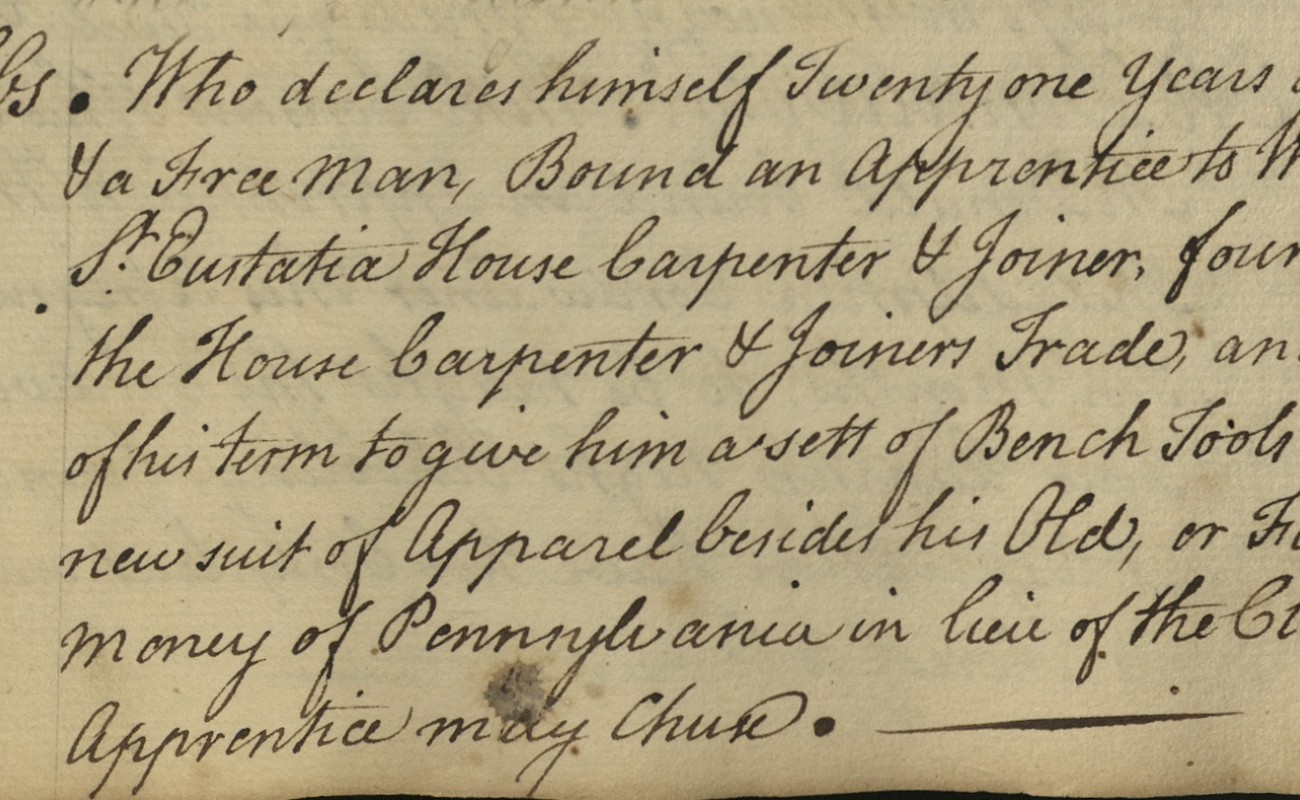 bs. Who declares himself Twenty one Years
& a Free Man, Bound an Apprentice to W
St. Eustatia House Carpenter & Joiner, four
the House Carpenter & Joiners Trade, an
of his term to give him a sett of Bench Tools
new suit of Apparel besides his Old, or F
money of Pennsylvania in lieu of the Cl
Apprentice may Chuse. —